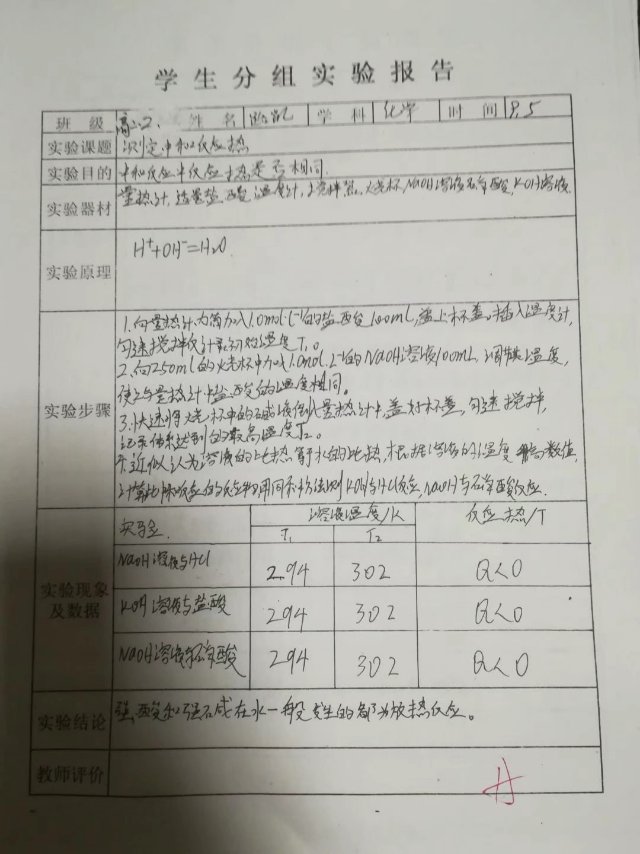 学生分组实验报告
班级 高二2. 姓名 学科 化学 时间 9.5
实验课题 测定中和反应热
实验目的 中和反应中反应热是否相同.
实验器材 量热计, 适量盐酸, 温度计, 搅拌器, 大烧杯, NaOH溶液, 硝酸, KOH溶液.
实验原理 H⁺+OH⁻=H₂O.
1.向量热计内筒加入1.0mol·L⁻¹的盐酸 100mL, 盖上杯盖。插入温度计,
匀速搅拌 初始温度T₁。
2.向250ml的大烧杯中加入1.0mol·L⁻¹的NaOH溶液100mL, 调其温度,
使之与量热计中盐酸的温度相同。
实验步骤
3.快速将烧杯中的碱液倒入量热计中, 盖好杯盖, 匀速搅拌,
记录体系达到的最高温度T₂。
近似认为溶液的比热等于水的比热, 根据溶液的温度 数值,
计算 反应的反应热用同样方法测KOH与HCl反应, NaOH与硝酸反应.
实验现象及数据
实验 溶液温度/K 反应热/J
T₁ T₂
NaOH溶液与HCl 294 302 Q<0
KOH溶液与盐酸 294 302 Q<0
NaOH溶液与硝酸 294 302 Q<0
实验结论 强酸和强碱在水一般发生的都为放热反应。
教师评价